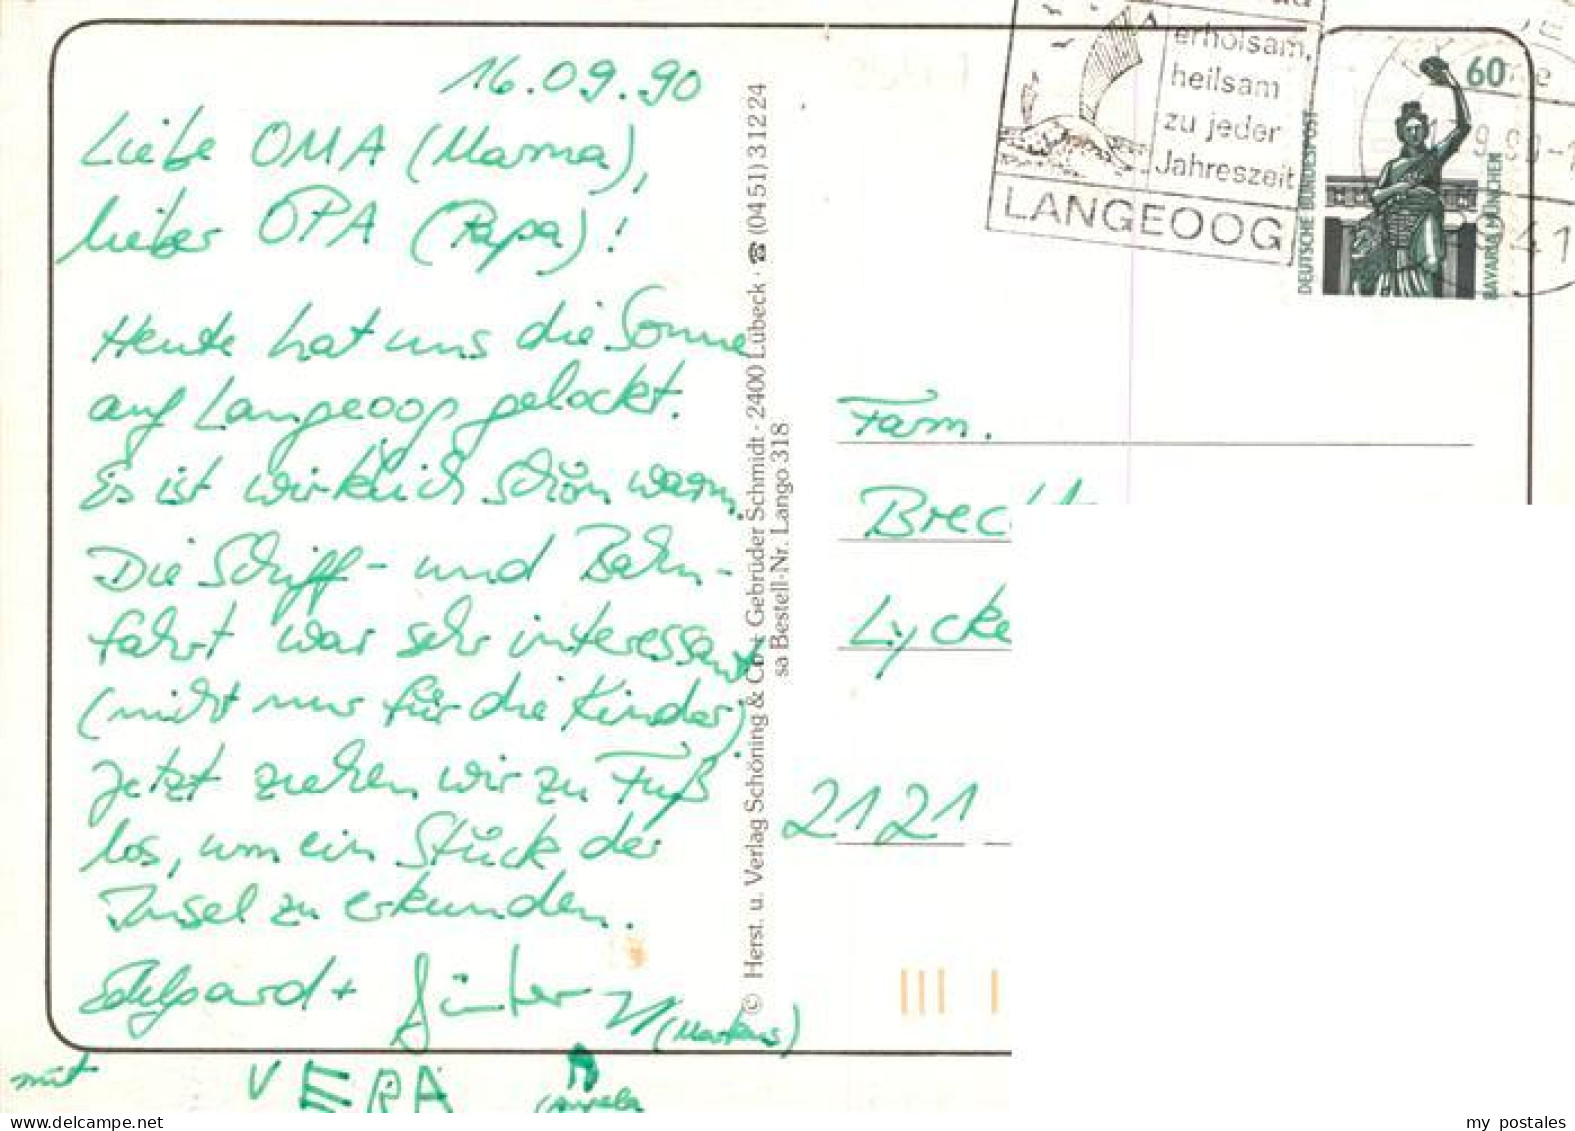 16.09.90
Liebe OMA (Mama),
lieber OPA (Papa)!
Heute hat uns die Sonne
auf Langeoog gelockt.
Es ist wirklich schön warm.
Die Schiff- und Bahn-
fahrt war sehr interessant
(nicht nur für die Kinder).
Jetzt ziehen wir zu Fuß
los, um ein Stück der
Insel zu erkunden.
+ Günter
(Markus)
mit VERA
(Angela
© Herst. u. Verlag Schöning & Co + Gebrüder Schmidt · 2400 Lübeck · ☎ (0451) 31224
sa Bestell-Nr. Lango 318
erholsam,
heilsam
zu jeder
Jahreszeit
LANGEOOG
DEUTSCHE BUNDESPOST
60
BAVARIA MÜNCHEN
Fam.
Brecht
Lycke
2121
my postales